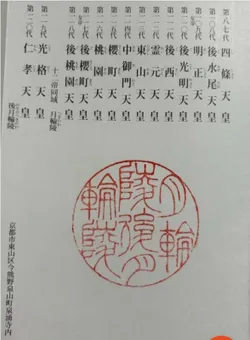 第八七代 四條天皇
第一〇八代 後水尾天皇
第一〇九代 明正天皇
第一一〇代 後光明天皇
第一一一代 後西天皇
第一一二代 霊元天皇
第一一三代 東山天皇
第一一四代 中御門天皇
第一一五代 櫻町天皇
第一一六代 桃園天皇
第一一七代 後櫻町天皇
第一一八代 後桃園天皇
十二帝同域 月輪陵
第一一九代 光格天皇
第一二〇代 仁孝天皇
後月輪陵
京都市東山区今熊野泉山町泉涌寺内
月輪
陵後月
輪陵